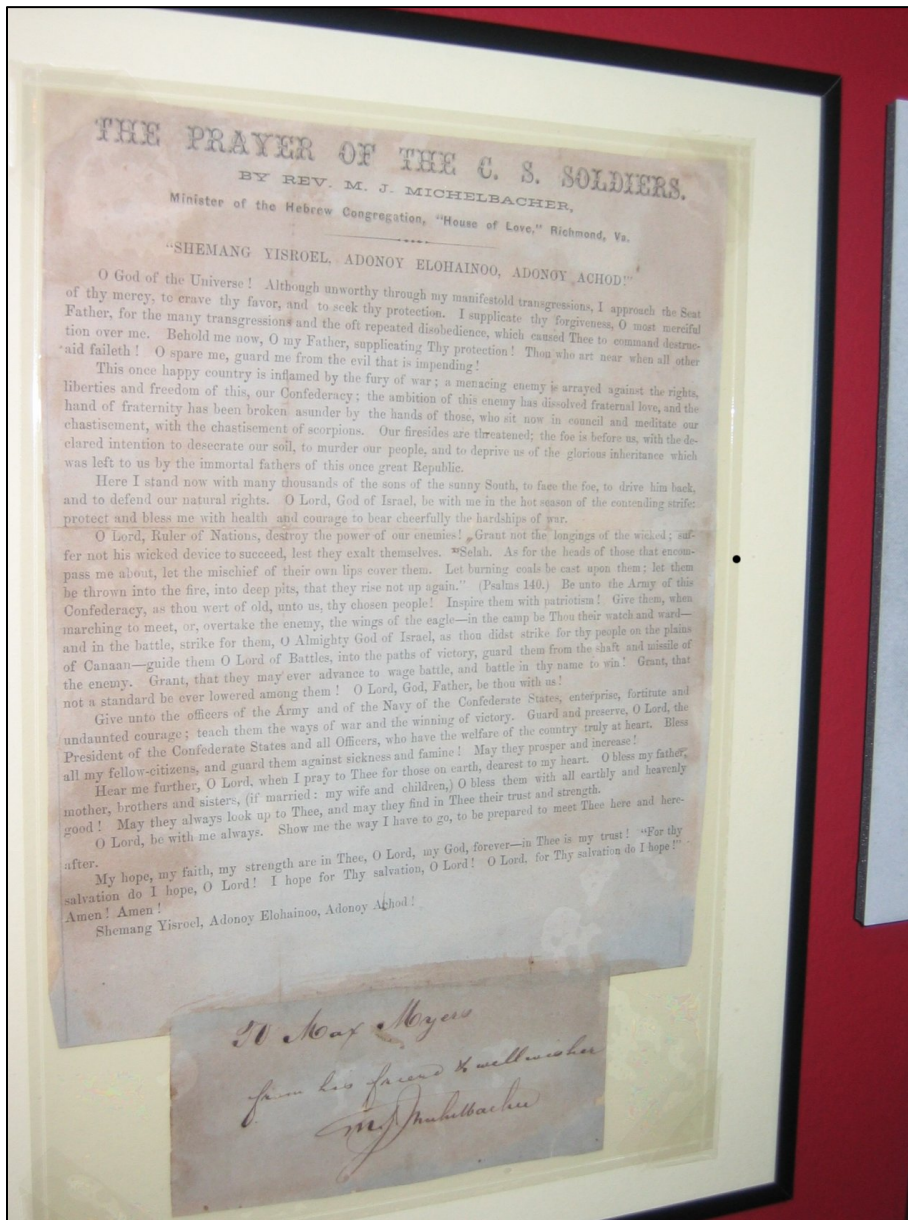 THE PRAYER OF THE C. S. SOLDIERS.
BY REV. M. J. MICHELBACHER,
Minister of the Hebrew Congregation, "House of Love," Richmond, Va.
"SHEMANG YISROEL, ADONOY ELOHAINOO, ADONOY ACHOD!"
O God of the Universe! Although unworthy through my manifestold transgressions, I approach the Seat
of thy mercy, to crave thy favor, and to seek thy protection. I supplicate thy forgiveness, O most merciful
Father, for the many transgressions and the oft repeated disobedience, which caused Thee to command destruc-
tion over me. Behold me now, O my Father, supplicating Thy protection! Thou who art near when all other
aid faileth! O spare me, guard me from the evil that is impending!
This once happy country is inflamed by the fury of war; a menacing enemy is arrayed against the rights,
liberties and freedom of this, our Confederacy; the ambition of this enemy has dissolved fraternal love, and the
hand of fraternity has been broken asunder by the hands of those, who sit now in council and meditate our
chastisement, with the chastisement of scorpions. Our firesides are threatened; the foe is before us, with the de-
clared intention to desecrate our soil, to murder our people, and to deprive us of the glorious inheritance which
was left to us by the immortal fathers of this once great Republic.
Here I stand now with many thousands of the sons of the sunny South, to face the foe, to drive him back,
and to defend our natural rights. O Lord, God of Israel, be with me in the hot season of the contending strife;
protect and bless me with health and courage to bear cheerfully the hardships of war.
O Lord, Ruler of Nations, destroy the power of our enemies! Grant not the longings of the wicked; suf-
fer not his wicked device to succeed, lest they exalt themselves. "Selah. As for the heads of those that encom-
pass me about, let the mischief of their own lips cover them. Let burning coals be cast upon them; let them
be thrown into the fire, into deep pits, that they rise not up again." (Psalms 140.) Be unto the Army of this
Confederacy, as thou wert of old, unto us, thy chosen people! Inspire them with patriotism! Give them, when
marching to meet, or, overtake the enemy, the wings of the eagle—in the camp be Thou their watch and ward—
and in the battle, strike for them, O Almighty God of Israel, as thou didst strike for thy people on the plains
of Canaan—guide them O Lord of Battles, into the paths of victory, guard them from the shaft and missile of
the enemy. Grant, that they may ever advance to wage battle, and battle in thy name to win! Grant, that
not a standard be ever lowered among them! O Lord, God, Father, be thou with us!
Give unto the officers of the Army and of the Navy of the Confederate States, enterprise, fortitute and
undaunted courage; teach them the ways of war and the winning of victory. Guard and preserve, O Lord, the
President of the Confederate States and all Officers, who have the welfare of the country truly at heart. Bless
all my fellow-citizens, and guard them against sickness and famine! May they prosper and increase!
Hear me further, O Lord, when I pray to Thee for those on earth, dearest to my heart. O bless my father,
mother, brothers and sisters, (if married: my wife and children,) O bless them with all earthly and heavenly
good! May they always look up to Thee, and may they find in Thee their trust and strength.
O Lord, be with me always. Show me the way I have to go, to be prepared to meet Thee here and here-
after.
My hope, my faith, my strength are in Thee, O Lord, my God, forever—in Thee is my trust! "For thy
salvation do I hope, O Lord! I hope for Thy salvation, O Lord! O Lord, for Thy salvation do I hope!"
Amen! Amen!
Shemang Yisroel, Adonoy Elohainoo, Adonoy Achod!
To Max Myers
from his friend & wellwisher
M. J. Michelbacher